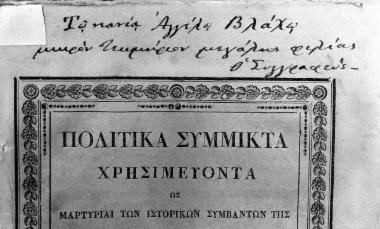 Τῷ κυρίῳ Ἀγγέλῳ Βλάχῳ
μικρὸν τεκμήριον μεγάλης φιλίας
ὁ Συγγραφεύς
ΠΟΛΙΤΙΚΑ ΣΥΜΜΙΚΤΑ
ΧΡΗΣΙΜΕΥΟΝΤΑ
ΩΣ
ΜΑΡΤΥΡΙΑΙ ΤΩΝ ΙΣΤΟΡΙΚΩΝ ΣΥΜΒΑΝΤΩΝ ΤΗΣ